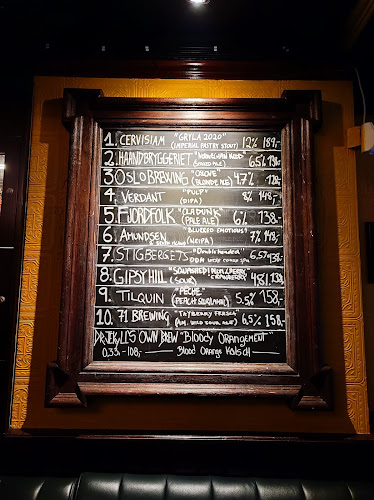 1. CERVISIAM "GRYLA 2020" 12% 189,-
(IMPERIAL PASTRY STOUT)
2. HAANDBRYGGERIET "NORWEGIAN WOOD" 6.5% 138,-
3 OSLO BREWING 4.7% 128,-
(BLONDE ALE)
4. VERDANT "PULP" 8% 148,-
(DIPA)
5. FJORDFOLK 6% 138,-
(PALE ALE)
6. AMUNDSEN "BLURRED EMOTIONS" 7% 148,-
(NEIPA)
7. STIGBERGETS 6.5% 138,-
8. GIPSY HILL "SQUASHED: PLUM, PERRY, CRANBERRY" 4.8% 138,-
(SOUR)
9. TILQUIN "PÊCHE" 5.5% 158,-
10. 71 BREWING "TAYBERRY FRESCA 6,5% 158,-
(AM. WILD SOUR ALE)
DR. JEKYLL'S OWN BREW "Bloody Orangement"
0.33 - 108,- Blood Orange Kölsch